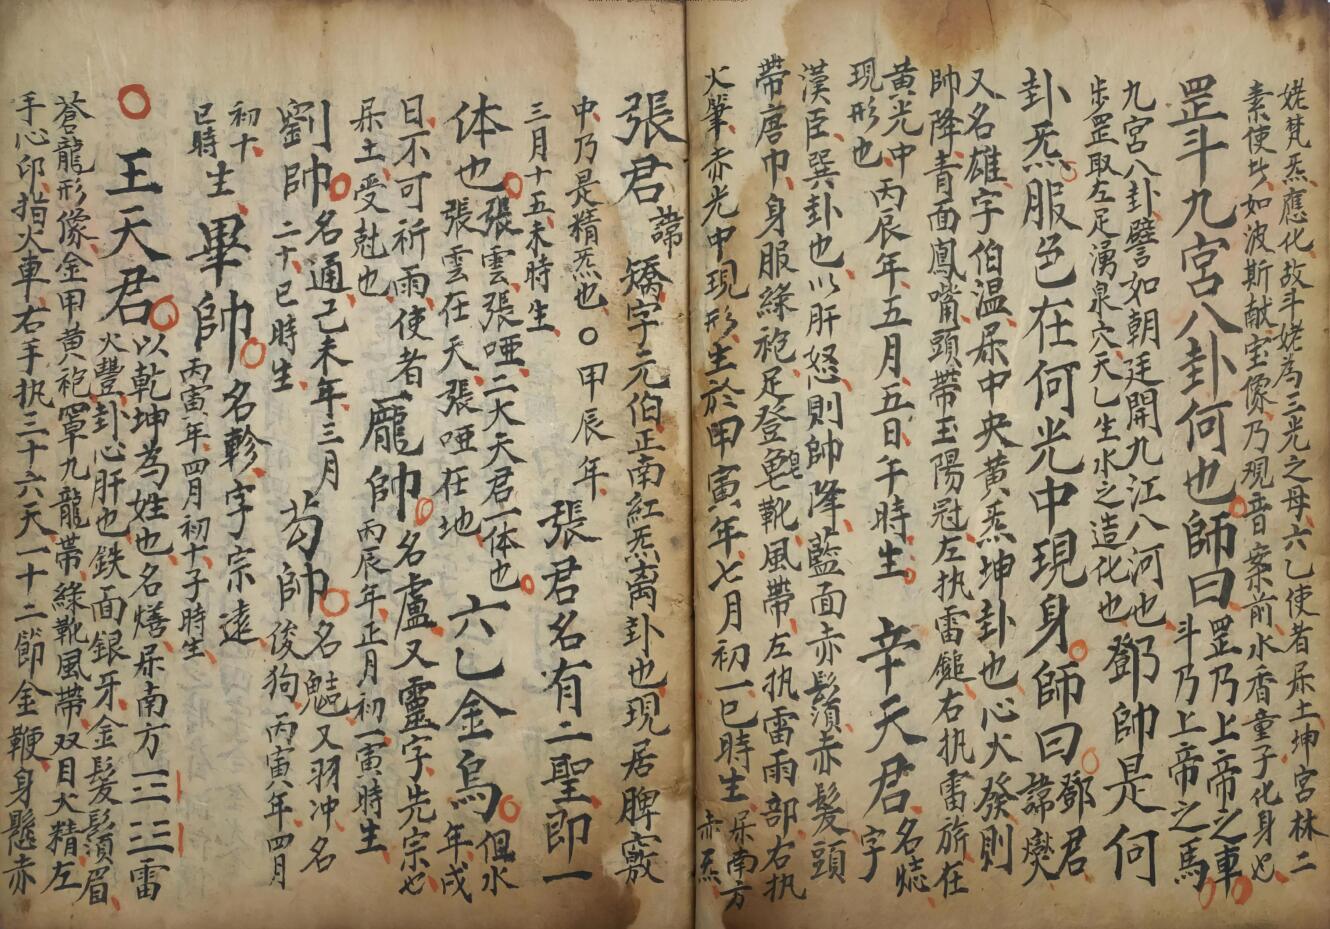 姥梵炁應化故斗姥為三光之母六乙使者屎土坤宮林二
素使比如波斯献宝像乃現音案前水香童子化身也
罡斗九宮八卦何也師曰罡乃上帝之車
斗乃上帝之馬
九宮八卦譬如朝廷開九江八河也
步罡取左足湧泉穴天乙生水之造化也
鄧帥是何
卦炁服色在何光中現身師曰鄧君
諱爕
又名雄字伯温屎中央黃炁坤卦也心火發則
帥降青面鳳嘴頭帶玉陽冠左执雷鎚右执雷旂在
黄光中丙辰年五月五日午時生
現形也
辛天君名
字
漢臣巽卦也以肝怒則帥降藍面赤鬚赤髮頭
帶唐巾身服綠袍足登皂靴風帶左执雷雨部右执
火筆赤光中現形生於甲寅年七月初一巳時生屎南方
赤炁
張君諱矯字元伯正南紅炁离卦也現居脾竅
中乃是精炁也○甲辰年
三月十五未時生
張君名有二聖即一
体也張雲張啞二大天君一体也
張雲在天張啞在地
六乙金烏但水
年戌
日不可祈雨使者龐帥名盧又靈字先宗也
屎土受尅也
丙辰年正月初一寅時生
劉帥名通己未年三月
二十巳時生
苟帥名魃又羽冲名
俊狗丙寅年四月
初十生畢帥名軫字宗遠
巳時
丙寅年四月初十子時生
王天君以乾坤為姓也名燔屎南方三三雷
火豐卦心肝也鉄面銀牙金髮鬚眉
蒼龍形像金甲黄袍罩九龍帶綠靴風帶双目火精左
手心印指火車右手执三十六天一十二節金鞭身懸赤